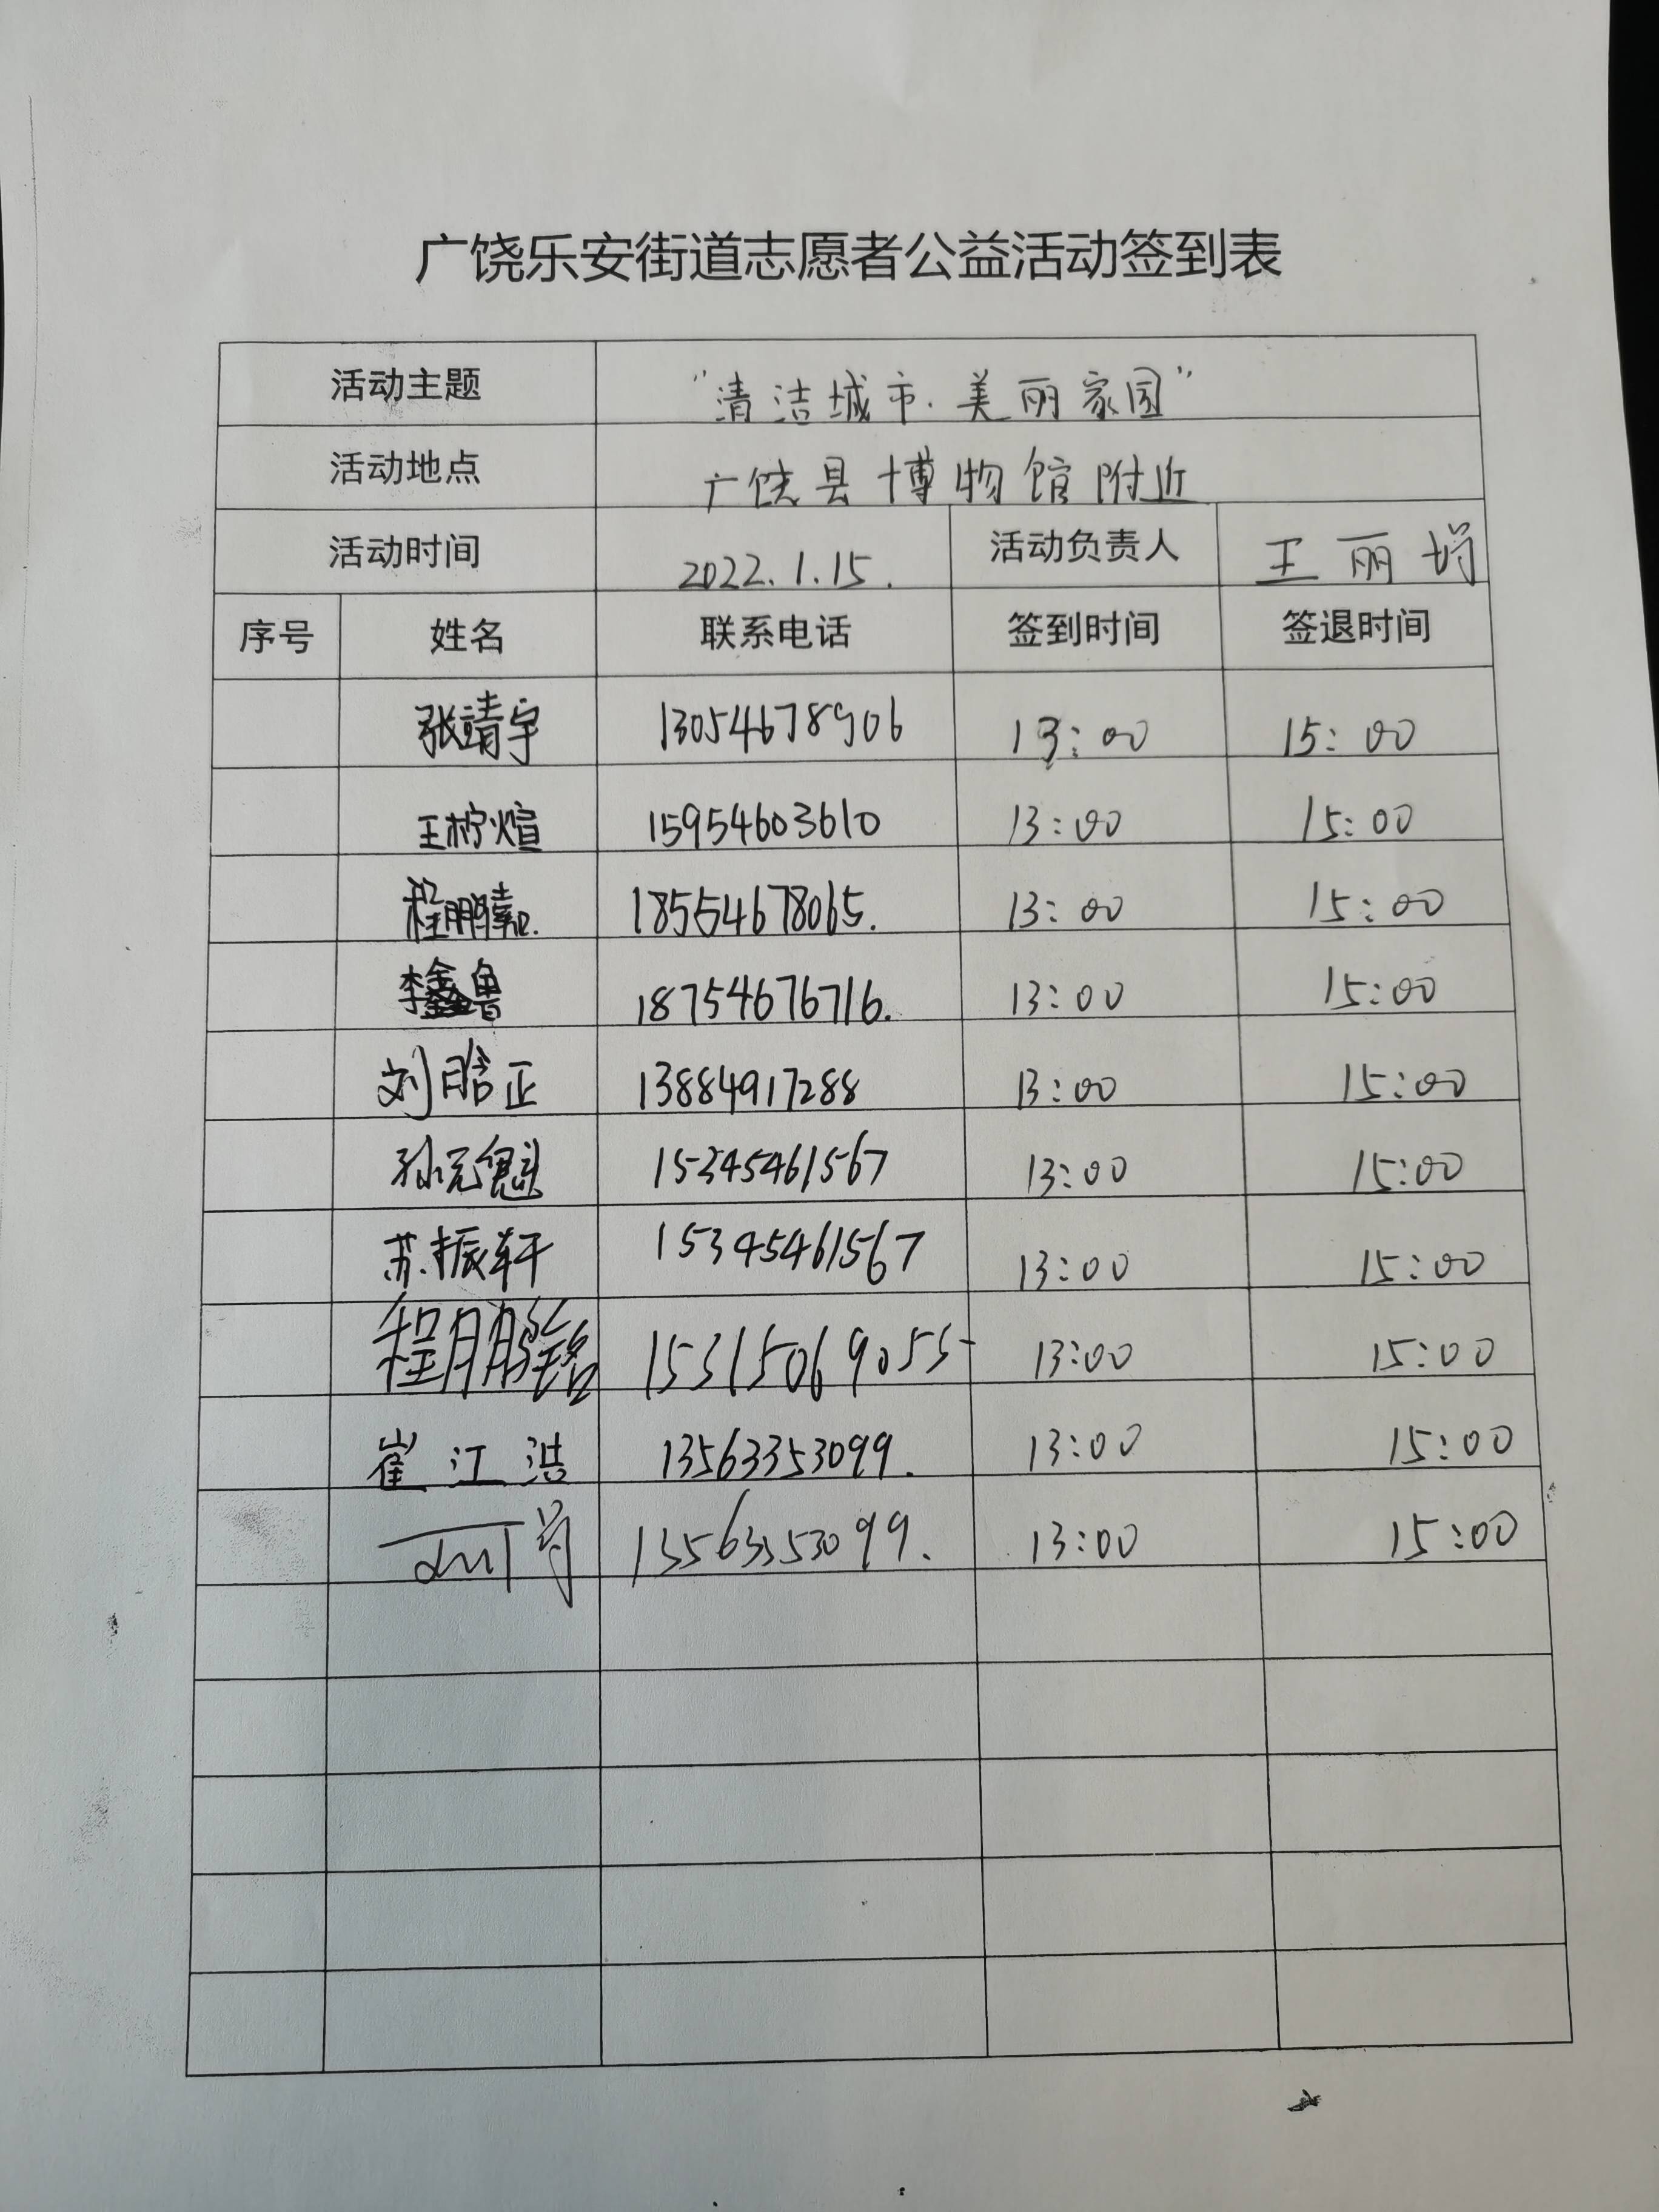 广饶乐安街道志愿者公益活动签到表
活动主题 “清洁城市.美丽家园”
活动地点 广饶县博物馆附近
活动时间 2022.1.15. 活动负责人 王丽
序号 姓名 联系电话 签到时间 签退时间
张靖宇 13054678906 13:00 15:00
王柠煊 15954603610 13:00 15:00
程鹏 18554678065. 13:00 15:00
李鑫鲁 18754676716. 13:00 15:00
刘皓正 13884917288 13:00 15:00
孙元魁 15345461567 13:00 15:00
苏振轩 15345461567 13:00 15:00
程鹏铭 15315069055 13:00 15:00
崔江浩 13563353099. 13:00 15:00
13563353099. 13:00 15:00